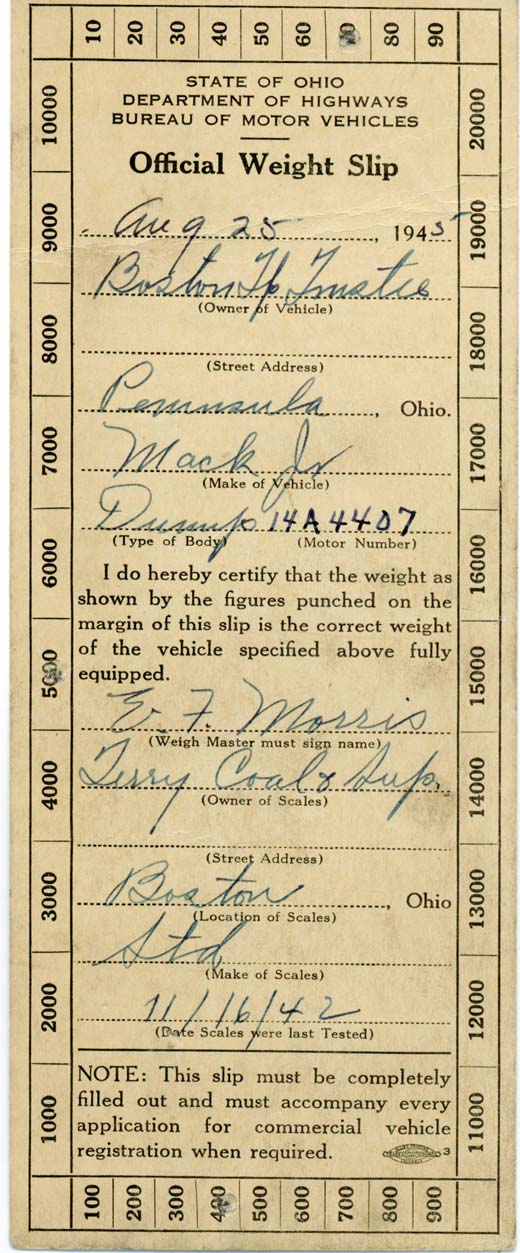 10 20 30 40 50 60 70 80 90
STATE OF OHIO
DEPARTMENT OF HIGHWAYS
BUREAU OF MOTOR VEHICLES
Official Weight Slip
Aug 25, 1945
Boston Tp Trustee
(Owner of Vehicle)
(Street Address)
Peninsula, Ohio.
Mack Jr
(Make of Vehicle)
Dump 14A4407
(Type of Body) (Motor Number)
I do hereby certify that the weight as
shown by the figures punched on the
margin of this slip is the correct weight
of the vehicle specified above fully
equipped.
E. F. Morris
(Weigh Master must sign name)
Terry Coal & Sup.
(Owner of Scales)
(Street Address)
Boston, Ohio
(Location of Scales)
Std
(Make of Scales)
11/16/42
(Date Scales were last Tested)
NOTE: This slip must be completely
filled out and must accompany every
application for commercial vehicle
registration when required.
3
10000
9000
8000
7000
6000
5000
4000
3000
2000
1000
20000
19000
18000
17000
16000
15000
14000
13000
12000
11000
100 200 300 400 500 600 700 800 900